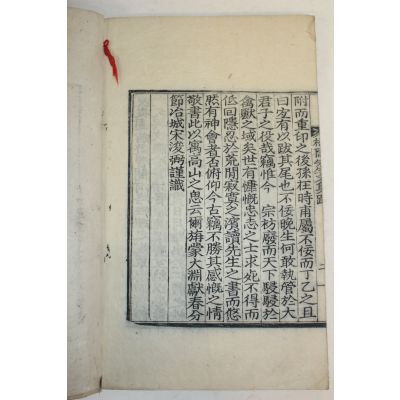 附而重印之後孫在時甫屬不佞而丁乙之且
曰宜有以跋其尾也不佞晚生何敢執管於大
君子之役哉竊惟今 宗祊廢而天下駸駸於
禽獸之域矣世有慷慨忠志之士求死不得而
低回隱忍於荒閒寂寞之濱讀先生之書而悠
然有神會者否俯仰今古竊不勝其感慨之情
敬書此以寓高山之思云爾旃蒙大淵獻春分
節冶城宋浚弼謹識
先生文集跋